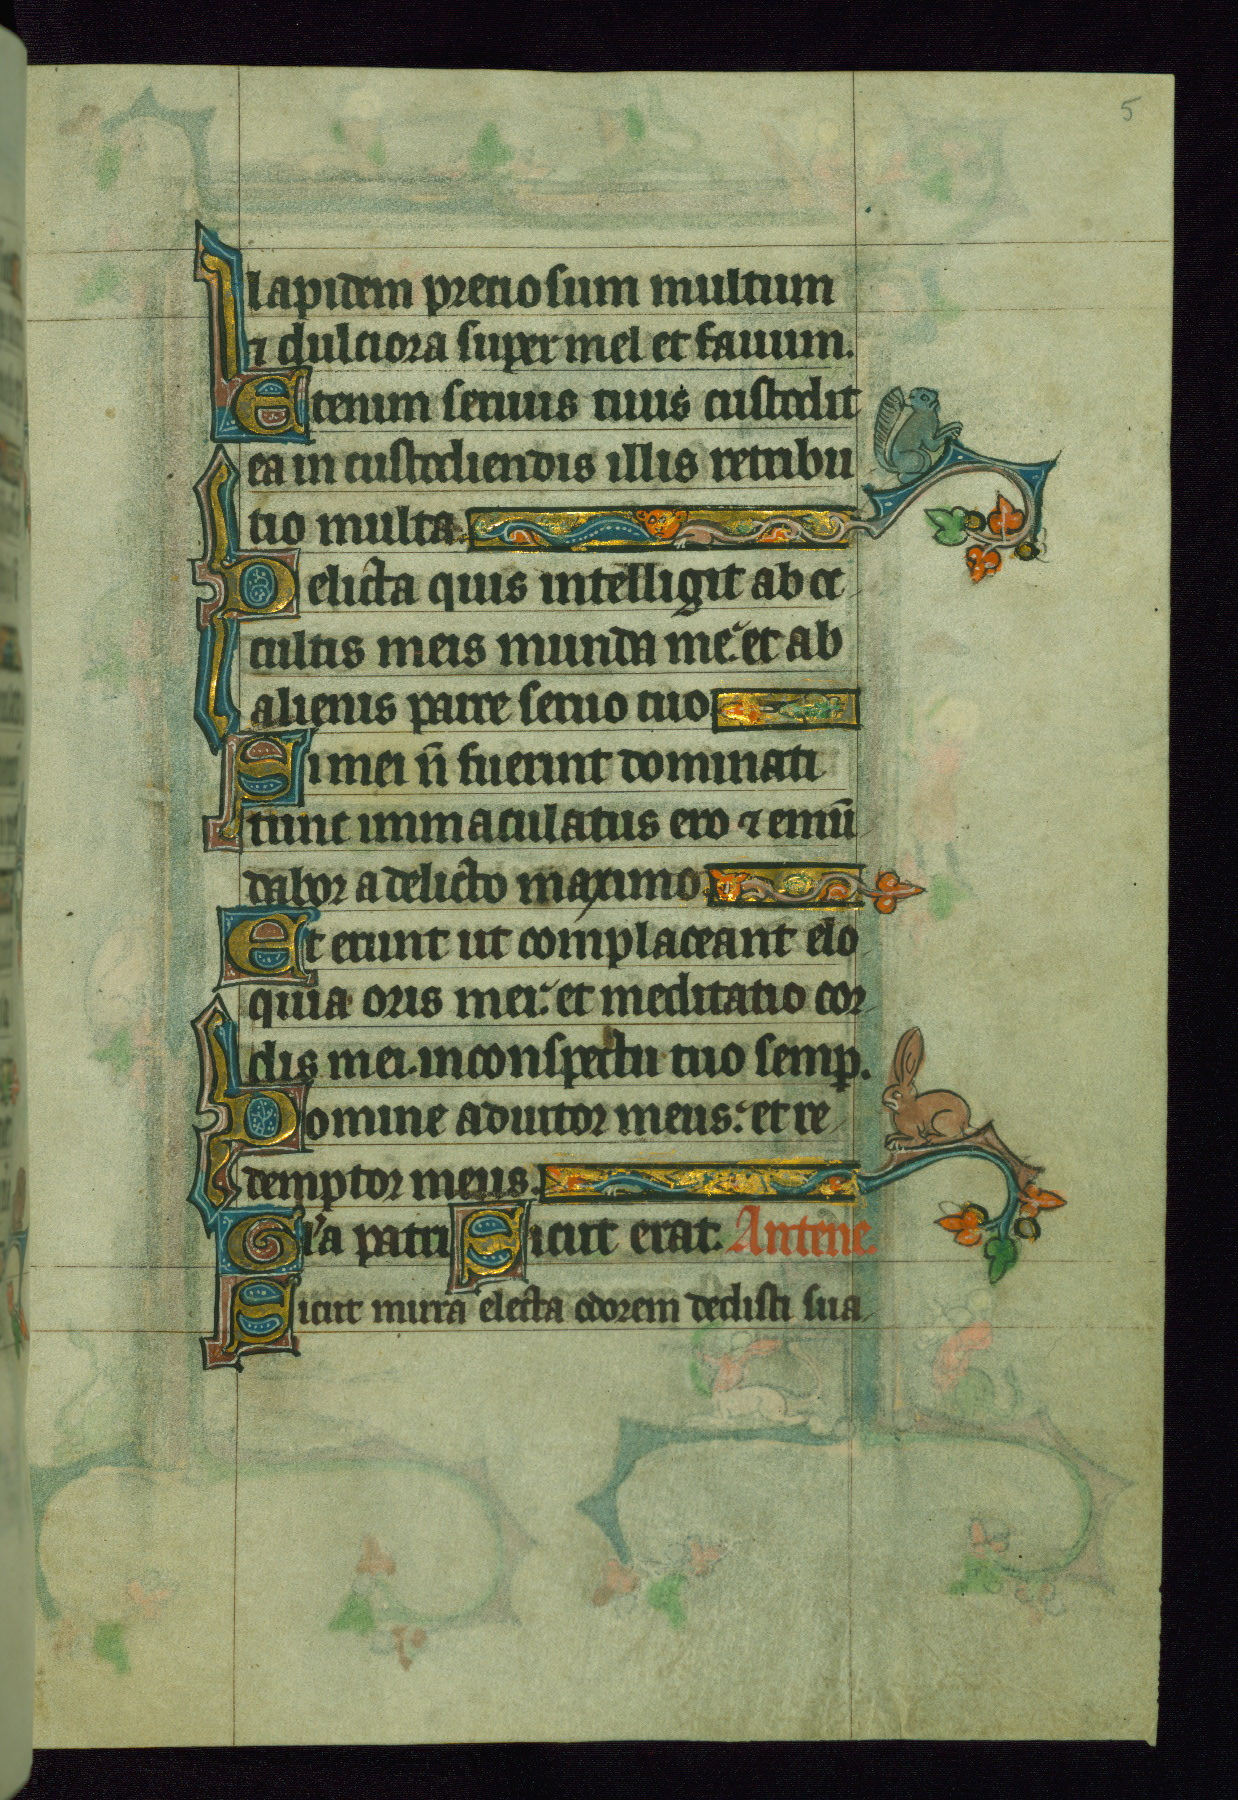 5
lapidem preciosum multum
⁊ dulciora super mel et fauum.
Etenim seruus tuus custodit
ea in custodiendis illis retribu
tio multa.
Delicta quis intelligit ab oc
cultis meis munda me: et ab
alienis parce seruo tuo
Si mei n̄ fuerint dominati
tunc immaculatus ero ⁊ emū
dabor a delicto maximo.
Et erunt ut complaceant elo
quia oris mei: et meditatio cor
dis mei in conspectu tuo semp̱.
Domine adiutor meus: et re
demptor meus.
Gl'a patri Sicut erat. Antene.
Sicut mirra electa odorem dedisti sua